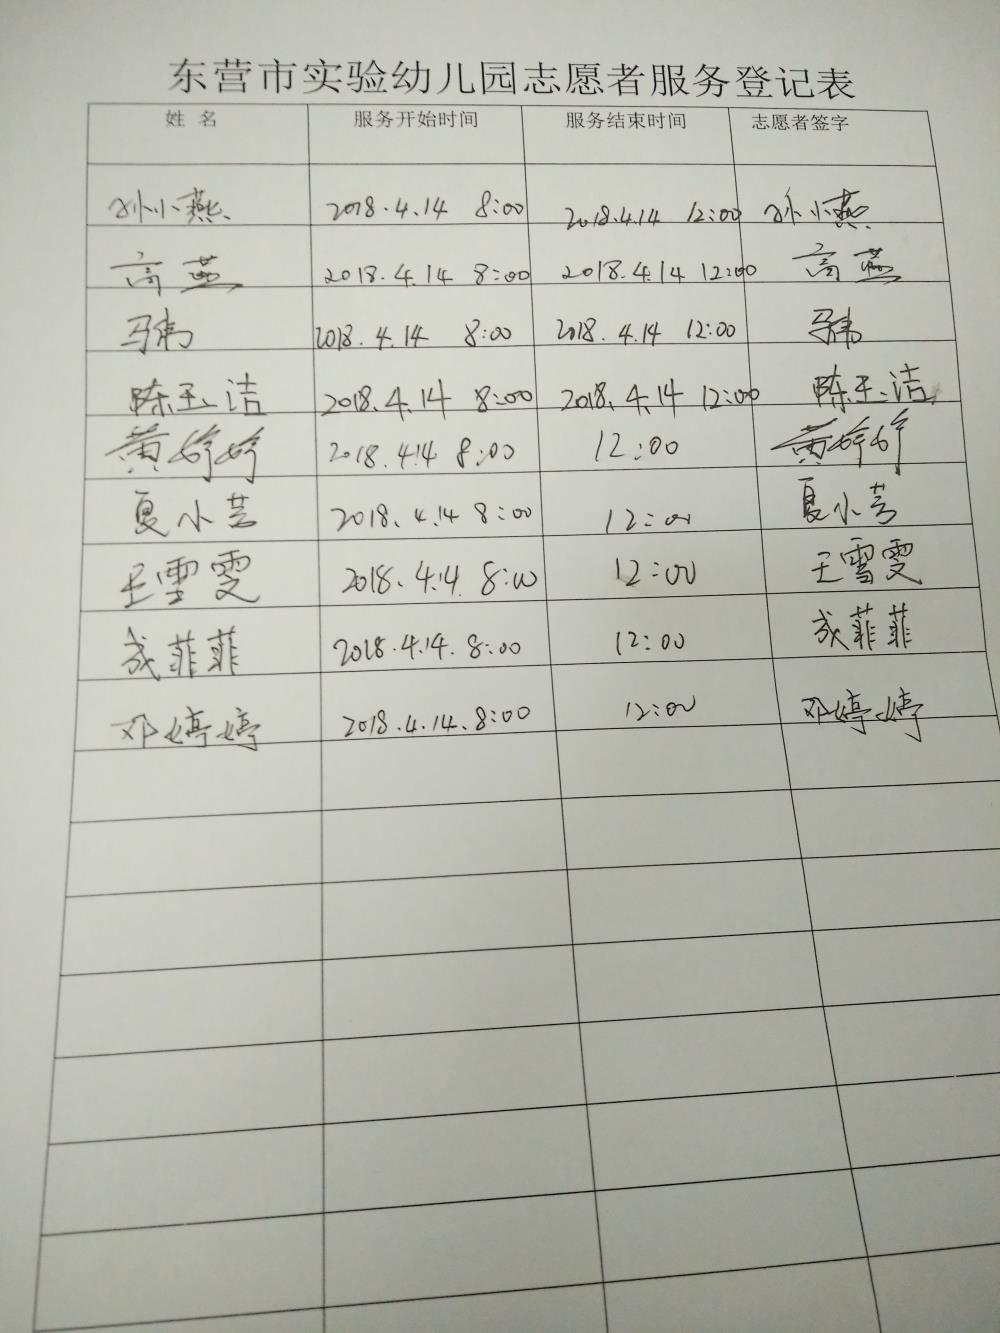 东营市实验幼儿园志愿者服务登记表
姓 名 服务开始时间 服务结束时间 志愿者签字
孙小燕 2018.4.14 8:00 2018.4.14 12:00 孙小燕
高燕 2018.4.14 8:00 2018.4.14 12:00 高燕
马伟 2018.4.14 8:00 2018.4.14 12:00 马伟
陈玉洁 2018.4.14 8:00 2018.4.14 12:00 陈玉洁
黄婷婷 2018.4.14 8:00 12:00 黄婷婷
夏小芸 2018.4.14 8:00 12:00 夏小芸
王雪雯 2018.4.14. 8:00 12:00 王雪雯
成菲菲 2018.4.14. 8:00 12:00 成菲菲
邓婷婷 2018.4.14. 8:00 12:00 邓婷婷